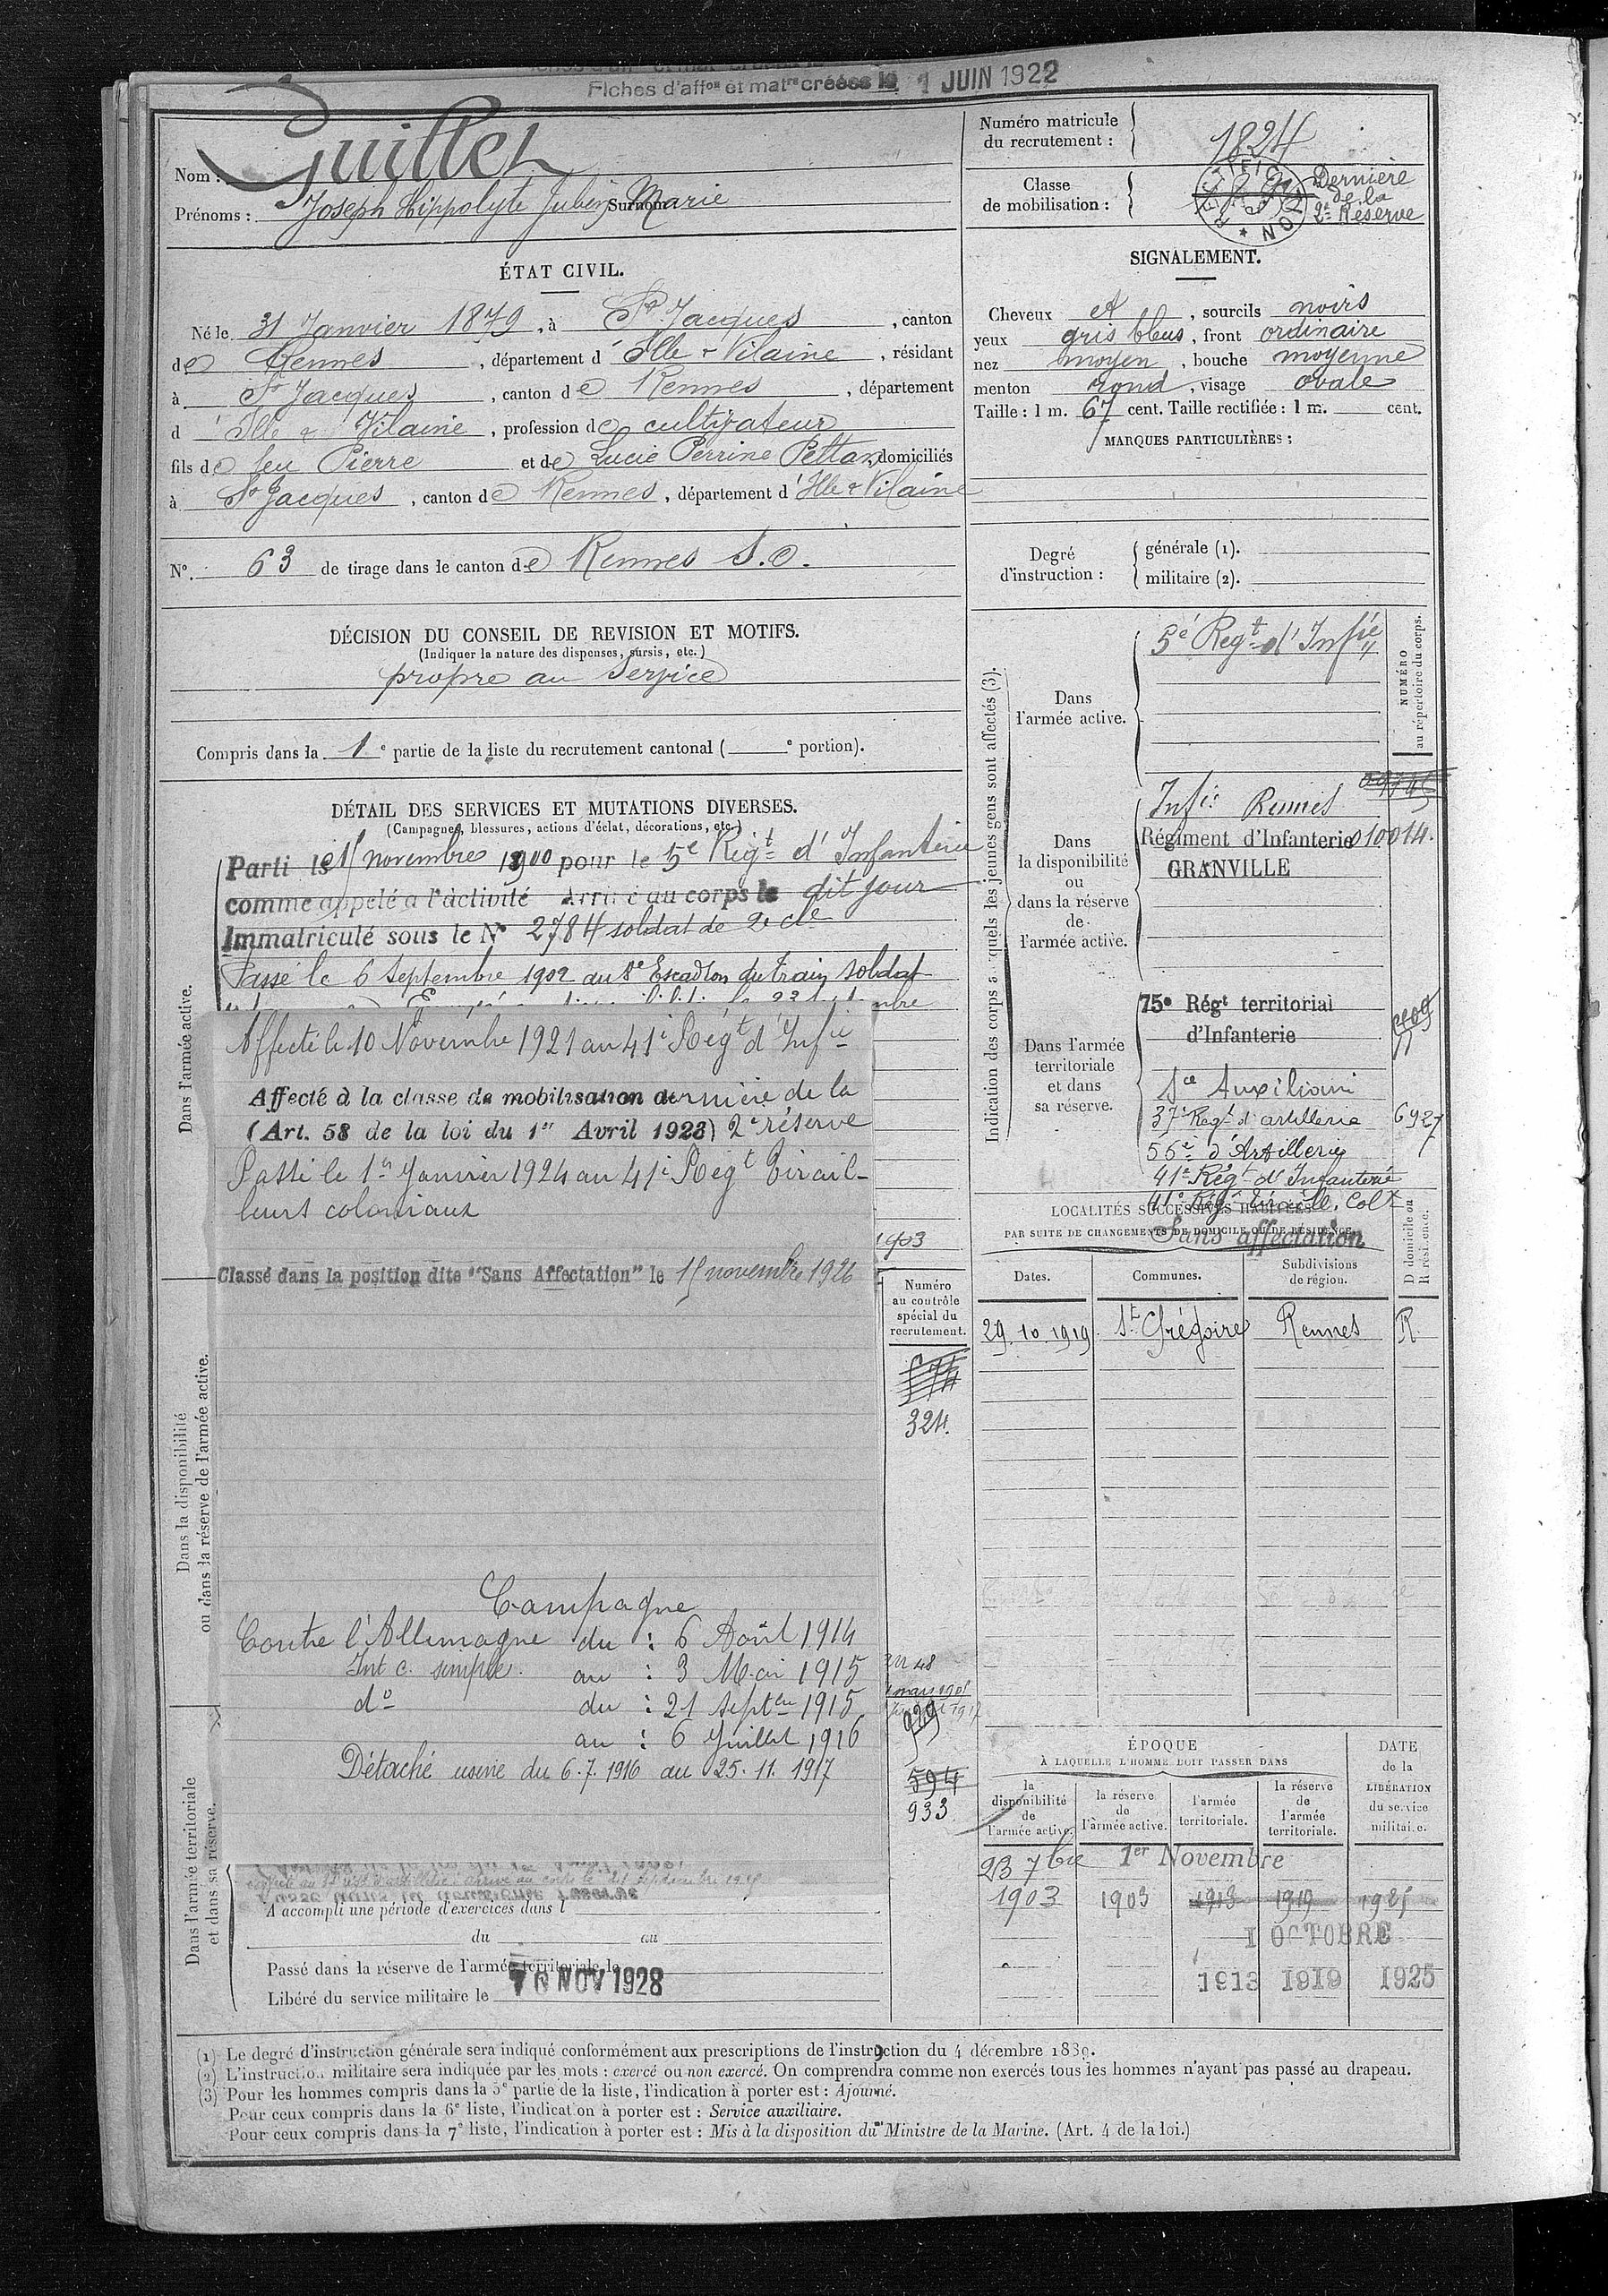 Fiches d'affon et matre créées le 1 JUIN 1922
Nom : Guillet
Prénoms : Joseph Hippolyte Julien Marie Surnoms
Numéro matricule du recrutement : 1824
Classe de mobilisation :
RECTIFICATION
Dernière
de la
2e Réserve
ÉTAT CIVIL.
Né le 31 Janvier 1879, à St Jacques, canton
de Rennes, département d'Ille & Vilaine, résidant
à St Jacques, canton de Rennes, département
d'Ille & Vilaine, profession de cultivateur
fils de feu Pierre et de Lucie Perrine Pettan domiciliés
à St Jacques, canton de Rennes, département d'Ille & Vilaine
N°. 63 de tirage dans le canton de Rennes S.O.
SIGNALEMENT.
Cheveux et, sourcils noirs
yeux gris bleus, front ordinaire
nez moyen, bouche moyenne
menton rond, visage ovale
Taille : 1 m. 67 cent. Taille rectifiée : 1 m. cent.
MARQUES PARTICULIÈRES :
Degré d'instruction :
générale (1).
militaire (2).
DÉCISION DU CONSEIL DE REVISION ET MOTIFS.
(Indiquer la nature des dispenses, sursis, etc.)
propre au service
Compris dans la 1e partie de la liste du recrutement cantonal ( e portion).
DÉTAIL DES SERVICES ET MUTATIONS DIVERSES.
(Campagnes, blessures, actions d'éclat, décorations, etc.)
Dans l'armée active.
Parti le 15 novembre 1900 pour le 5e Régt d'Infanterie
comme appelé à l'activité Arrivé au corps le dit jour
Immatriculé sous le N° 2784 soldat de 2e cle
Passé le 6 Septembre 1902 au 8e Escadron du train soldat
Affecté le 10 Novembre 1921 au 41e Régt d'Infie
Affecté à la classe de mobilisation dernière de la
(Art. 58 de la loi du 1er Avril 1923) 2e réserve
Passé le 1er Janvier 1924 au 41e Régt Tirail-
leurs coloniaux
1903
Classé dans la position dite "Sans Affectation" le 15 novembre 1926
Dans la disponibilité
ou dans la réserve de l'armée active.
Campagne
Contre l'Allemagne du : 6 Août 1914
Int c. simple. au : 3 Mai 1915
do du : 21 septbre 1915
au : 6 Juillet 1916
Détaché usine du 6.7.1916 au 25.11.1917
Numéro
au contrôle
spécial du
recrutement.
574
324.
929
594
933
Dans l'armée territoriale
et dans sa réserve.
A accompli une période d'exercices dans l
du au
Passé dans la réserve de l'armée territoriale le
Libéré du service militaire le 10 NOV 1928
Indication des corps auxquels les jeunes gens sont affectés (3).
NUMÉRO
au répertoire du corps.
Dans
l'armée active.
5e Regt d'Infie
Dans
la disponibilité
ou
dans la réserve
de
l'armée active.
Infie Rennes
Régiment d'Infanterie 010014.
GRANVILLE
Dans l'armée
territoriale
et dans
sa réserve.
75e Régt territorial
d'Infanterie
Sce Auxiliaire
37e Regt d'artillerie 6927
56e d'Artillerie
41e Régt d'Infanterie
41e Régt tiraill. Colx
Sans affectation
LOCALITÉS SUCCESSIVES HABITÉES
PAR SUITE DE CHANGEMENTS DE DOMICILE OU DE RÉSIDENCE.
Dates.
Communes.
Subdivisions
de région.
D domicile ou
R résidence.
29.10.1919 St Grégoire Rennes R
ÉPOQUE
À LAQUELLE L'HOMME DOIT PASSER DANS
la
disponibilité
de
l'armée active.
la réserve
de
l'armée active.
l'armée
territoriale.
la réserve
de
l'armée
territoriale.
DATE
de la
LIBÉRATION
du service
militaire.
23 7bre 1er Novembre
1903 1903 1913 1919 1925
1 OCTOBRE
1913 1919 1925
(1) Le degré d'instruction générale sera indiqué conformément aux prescriptions de l'instruction du 4 décembre 1889.
(2) L'instruction militaire sera indiquée par les mots : exercé ou non exercé. On comprendra comme non exercés tous les hommes n'ayant pas passé au drapeau.
(3) Pour les hommes compris dans la 5e partie de la liste, l'indication à porter est : Ajourné.
Pour ceux compris dans la 6e liste, l'indication à porter est : Service auxiliaire.
Pour ceux compris dans la 7e liste, l'indication à porter est : Mis à la disposition du Ministre de la Marine. (Art. 4 de la loi.)